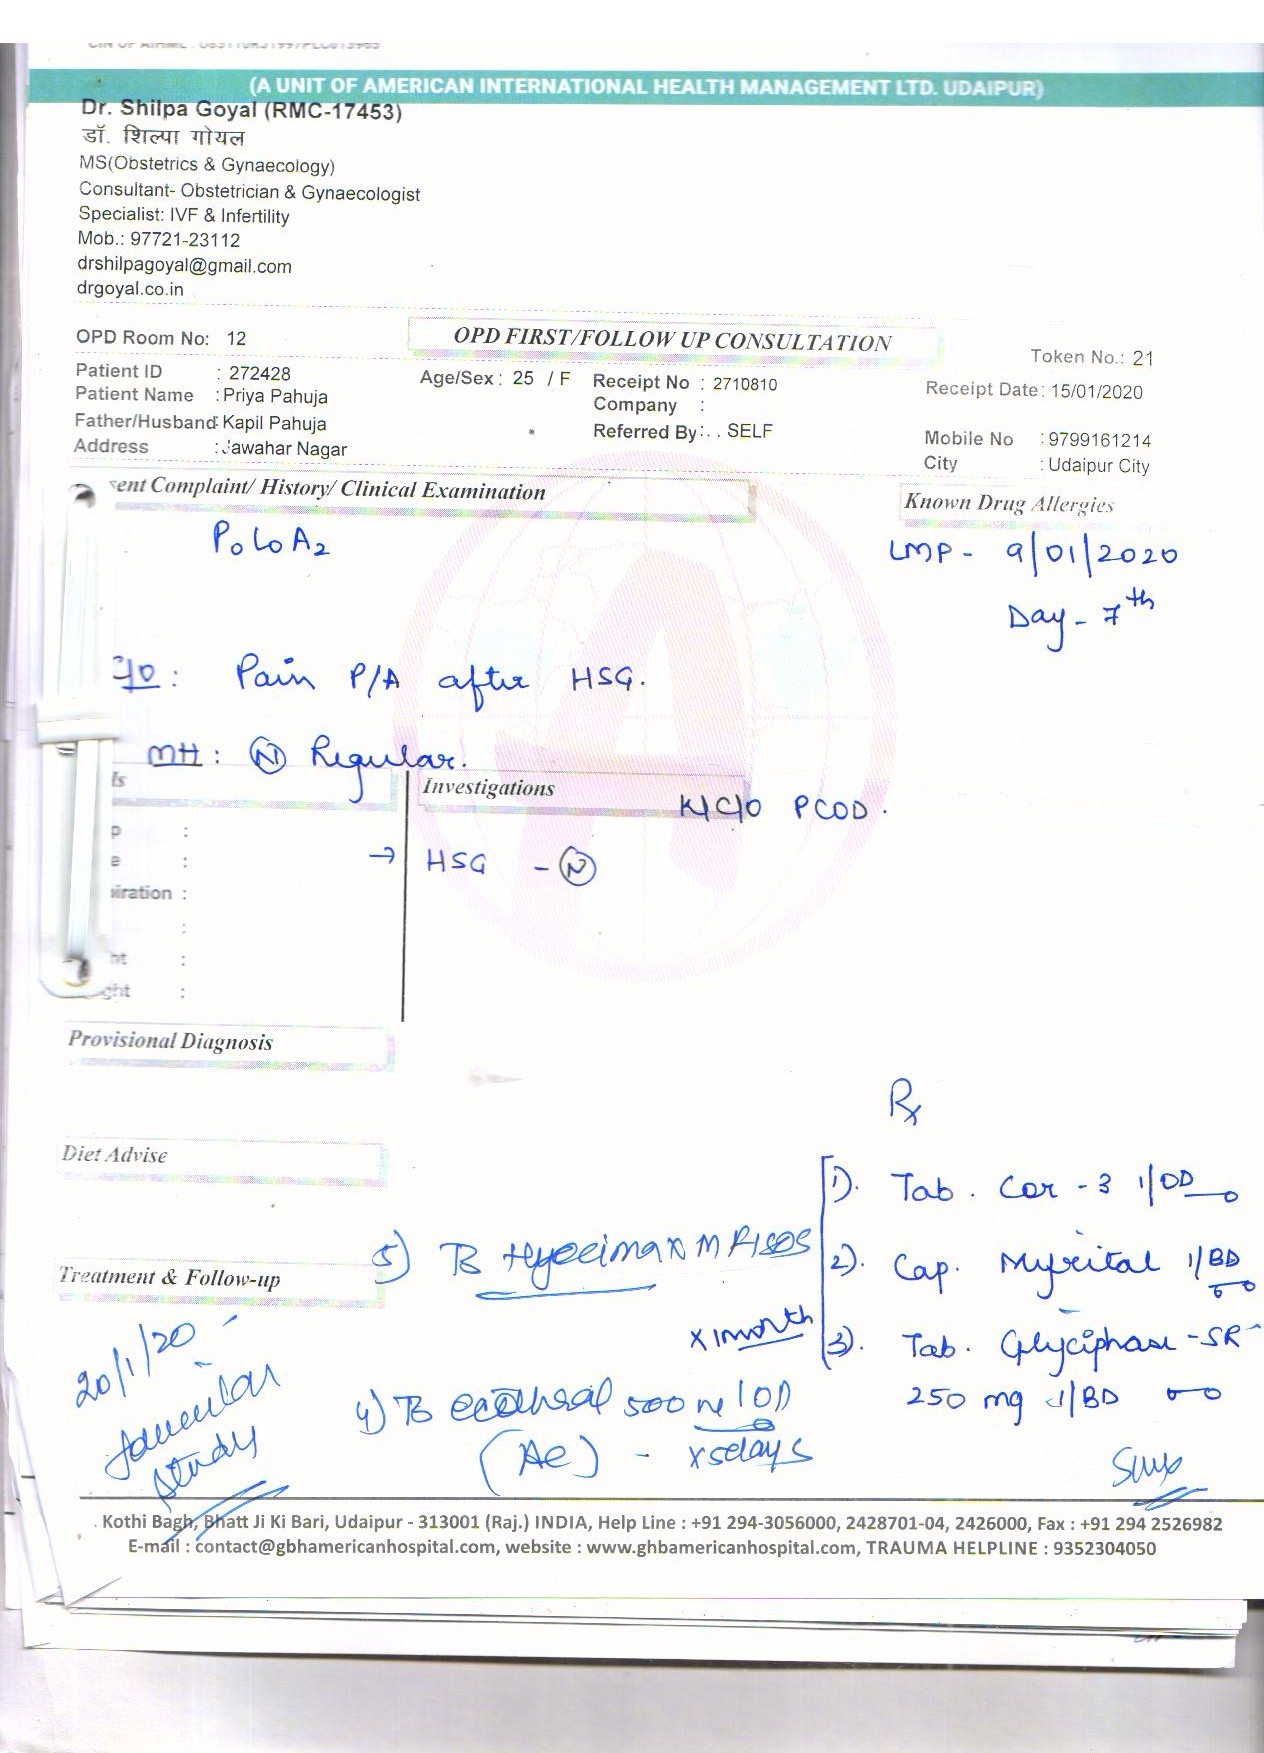 (A UNIT OF AMERICAN INTERNATIONAL HEALTH MANAGEMENT LTD. UDAIPUR)
Dr. Shilpa Goyal (RMC-17453)
डॉ. शिल्पा गोयल
MS(Obstetrics & Gynaecology)
Consultant- Obstetrician & Gynaecologist
Specialist: IVF & Infertility
Mob.: 97721-23112
drshilpagoyal@gmail.com
drgoyal.co.in
OPD Room No: 12
OPD FIRST/FOLLOW UP CONSULTATION
Token No.: 21
Patient ID : 272428
Age/Sex : 25 / F
Receipt No : 2710810
Receipt Date: 15/01/2020
Patient Name : Priya Pahuja
Company :
Father/Husband: Kapil Pahuja
Referred By: . . SELF
Mobile No : 9799161214
Address : Jawahar Nagar
City : Udaipur City
ent Complaint/ History/ Clinical Examination
Known Drug Allergies
P0L0A2
LMP - 9/01/2020
Day - 7th
C/O : Pain P/A after HSG.
MH : (N) Regular.
ls
Investigations
K/C/O PCOD.
p :
e :
→ HSG - (N)
iration :
:
ht :
ght :
Provisional Diagnosis
Rx
Diet Advise
1). Tab. Cor - 3 1/OD
5)
2). Cap. 1/BD
Treatment & Follow-up
x 1month
3). Tab. Glyciphase - SR
250 mg 1/BD
20/1/20
4) 500 OD
x 5days
study
Kothi Bagh, Bhatt Ji Ki Bari, Udaipur - 313001 (Raj.) INDIA, Help Line : +91 294-3056000, 2428701-04, 2426000, Fax : +91 294 2526982
E-mail : contact@gbhamericanhospital.com, website : www.ghbamericanhospital.com, TRAUMA HELPLINE : 9352304050